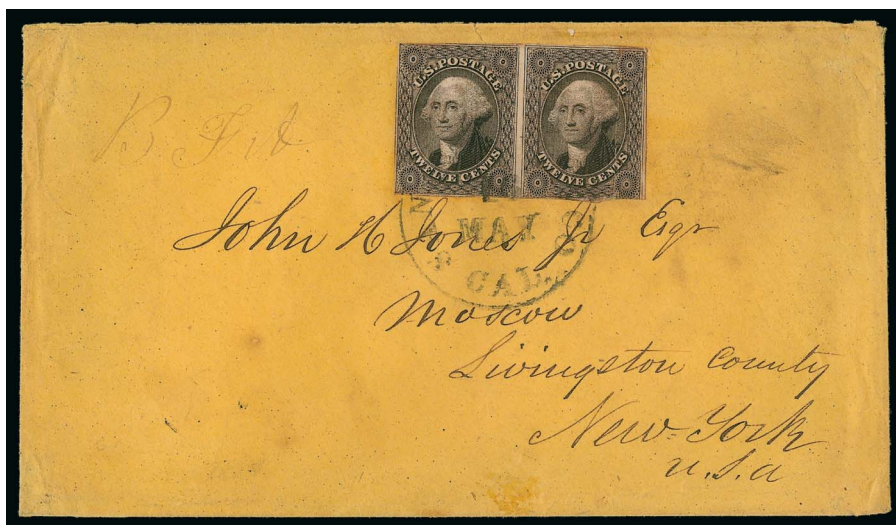 U.S. POSTAGE
TWELVE CENTS
U.S. POSTAGE
TWELVE CENTS
MAY
CAL.
John H Jones Jr Esqr
Moscow
Livingston County
New-York
U.S.A